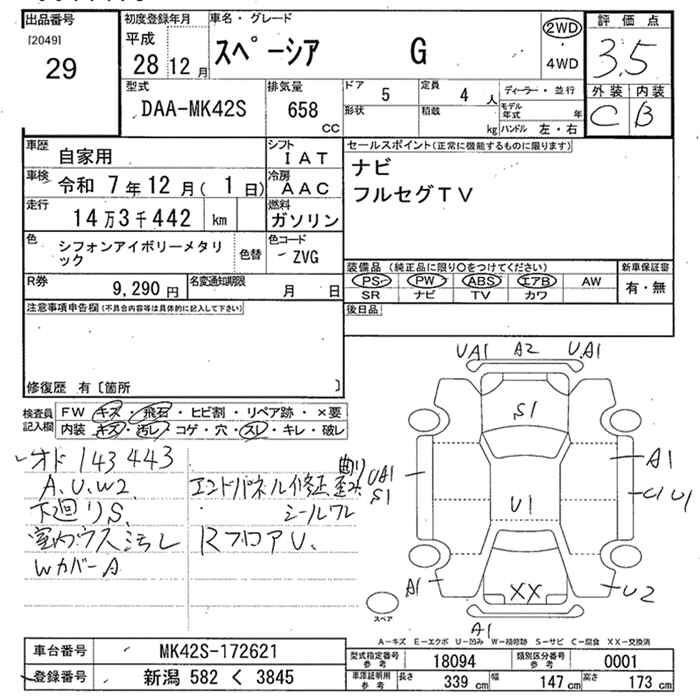 出品番号 初度登録年月 車名・グレード 評価点
[2049] 平成 スペーシア G 2WD 3.5
29 28 12月 4WD 外装 内装
型式 排気量 ドア 5 定員 4 人 ディーラー・並行 C B
DAA-MK42S 658 cc 形状 積載 kg モデル年式 年
ハンドル 左・右
車歴 自家用 シフト IAT セールスポイント(正常に機能するものに限ります)
車検 令和 7年12月(1日) 冷房 AAC ナビ
走行 14万3千442 km 燃料 ガソリン フルセグTV
色 シフォンアイボリーメタリック 色替 色コード ZVG
装備品 (純正品に限り〇をつけてください) 新車保証書
R券 9,290円 名変通知期限 月 日 PS PW ABS エアB AW 有・無
SR ナビ TV カワ
注意事項申告欄(不具合内容等は具体的に記入して下さい) 後日品
修復歴 有〔箇所 〕
検査員記入欄 FW キズ・飛石・ヒビ割・リペア跡・×要
内装 キズ・汚レ・コゲ・穴・スレ・キレ・破レ
オド 143443
A.U.W2 エンドパネル修正
下廻りS. シールワレ
室内ウス汚レ RフロアU.
WカバーA
UA1 A2 U.A1
S1
A1
UA1
S1
U1
U1
XX
A1
U2
A1
スペア
A-キズ E-エクボ U-凹み W-補修跡 S-サビ C-腐食 XX-交換済
車台番号 MK42S-172621 型式指定番号 参考 18094 類別区分番号 参考 0001
登録番号 新潟 582 く 3845 車庫証明用 参考 長さ 339 cm 幅 147 cm 高さ 173 cm